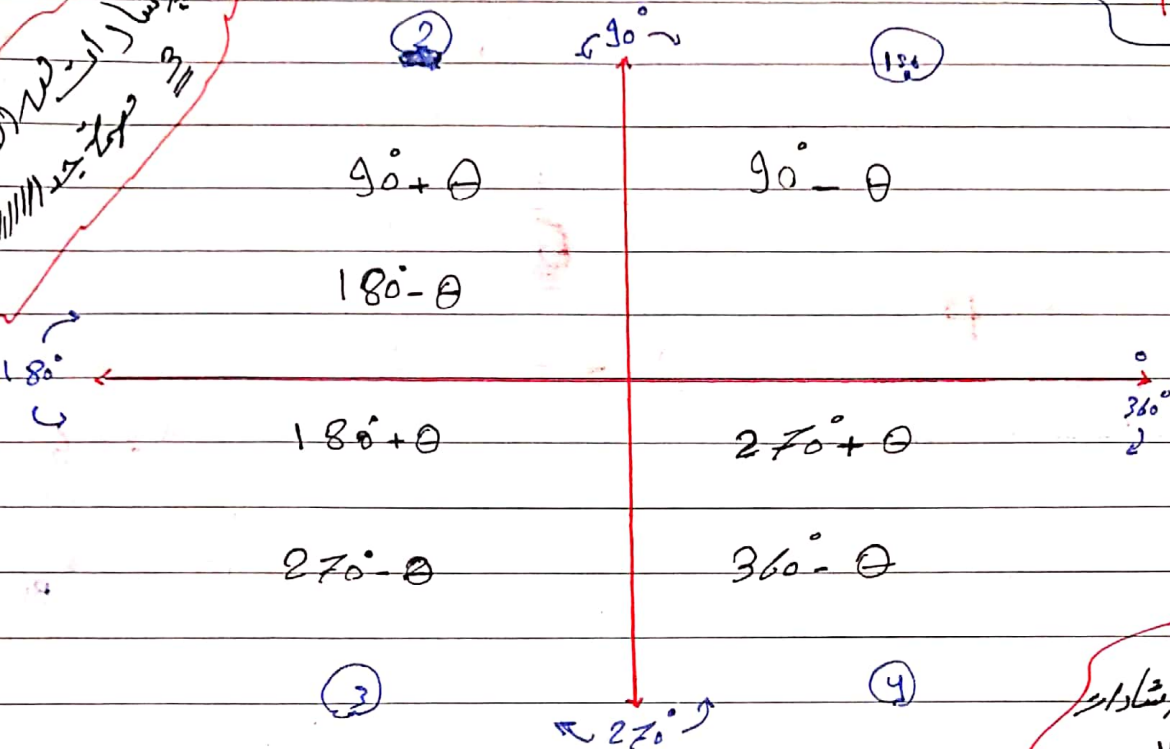 2 90° 1st
90° + θ 90° - θ
180° - θ
180° 0°
360°
180° + θ 270° + θ
270° - θ 360° - θ
3 4
270°